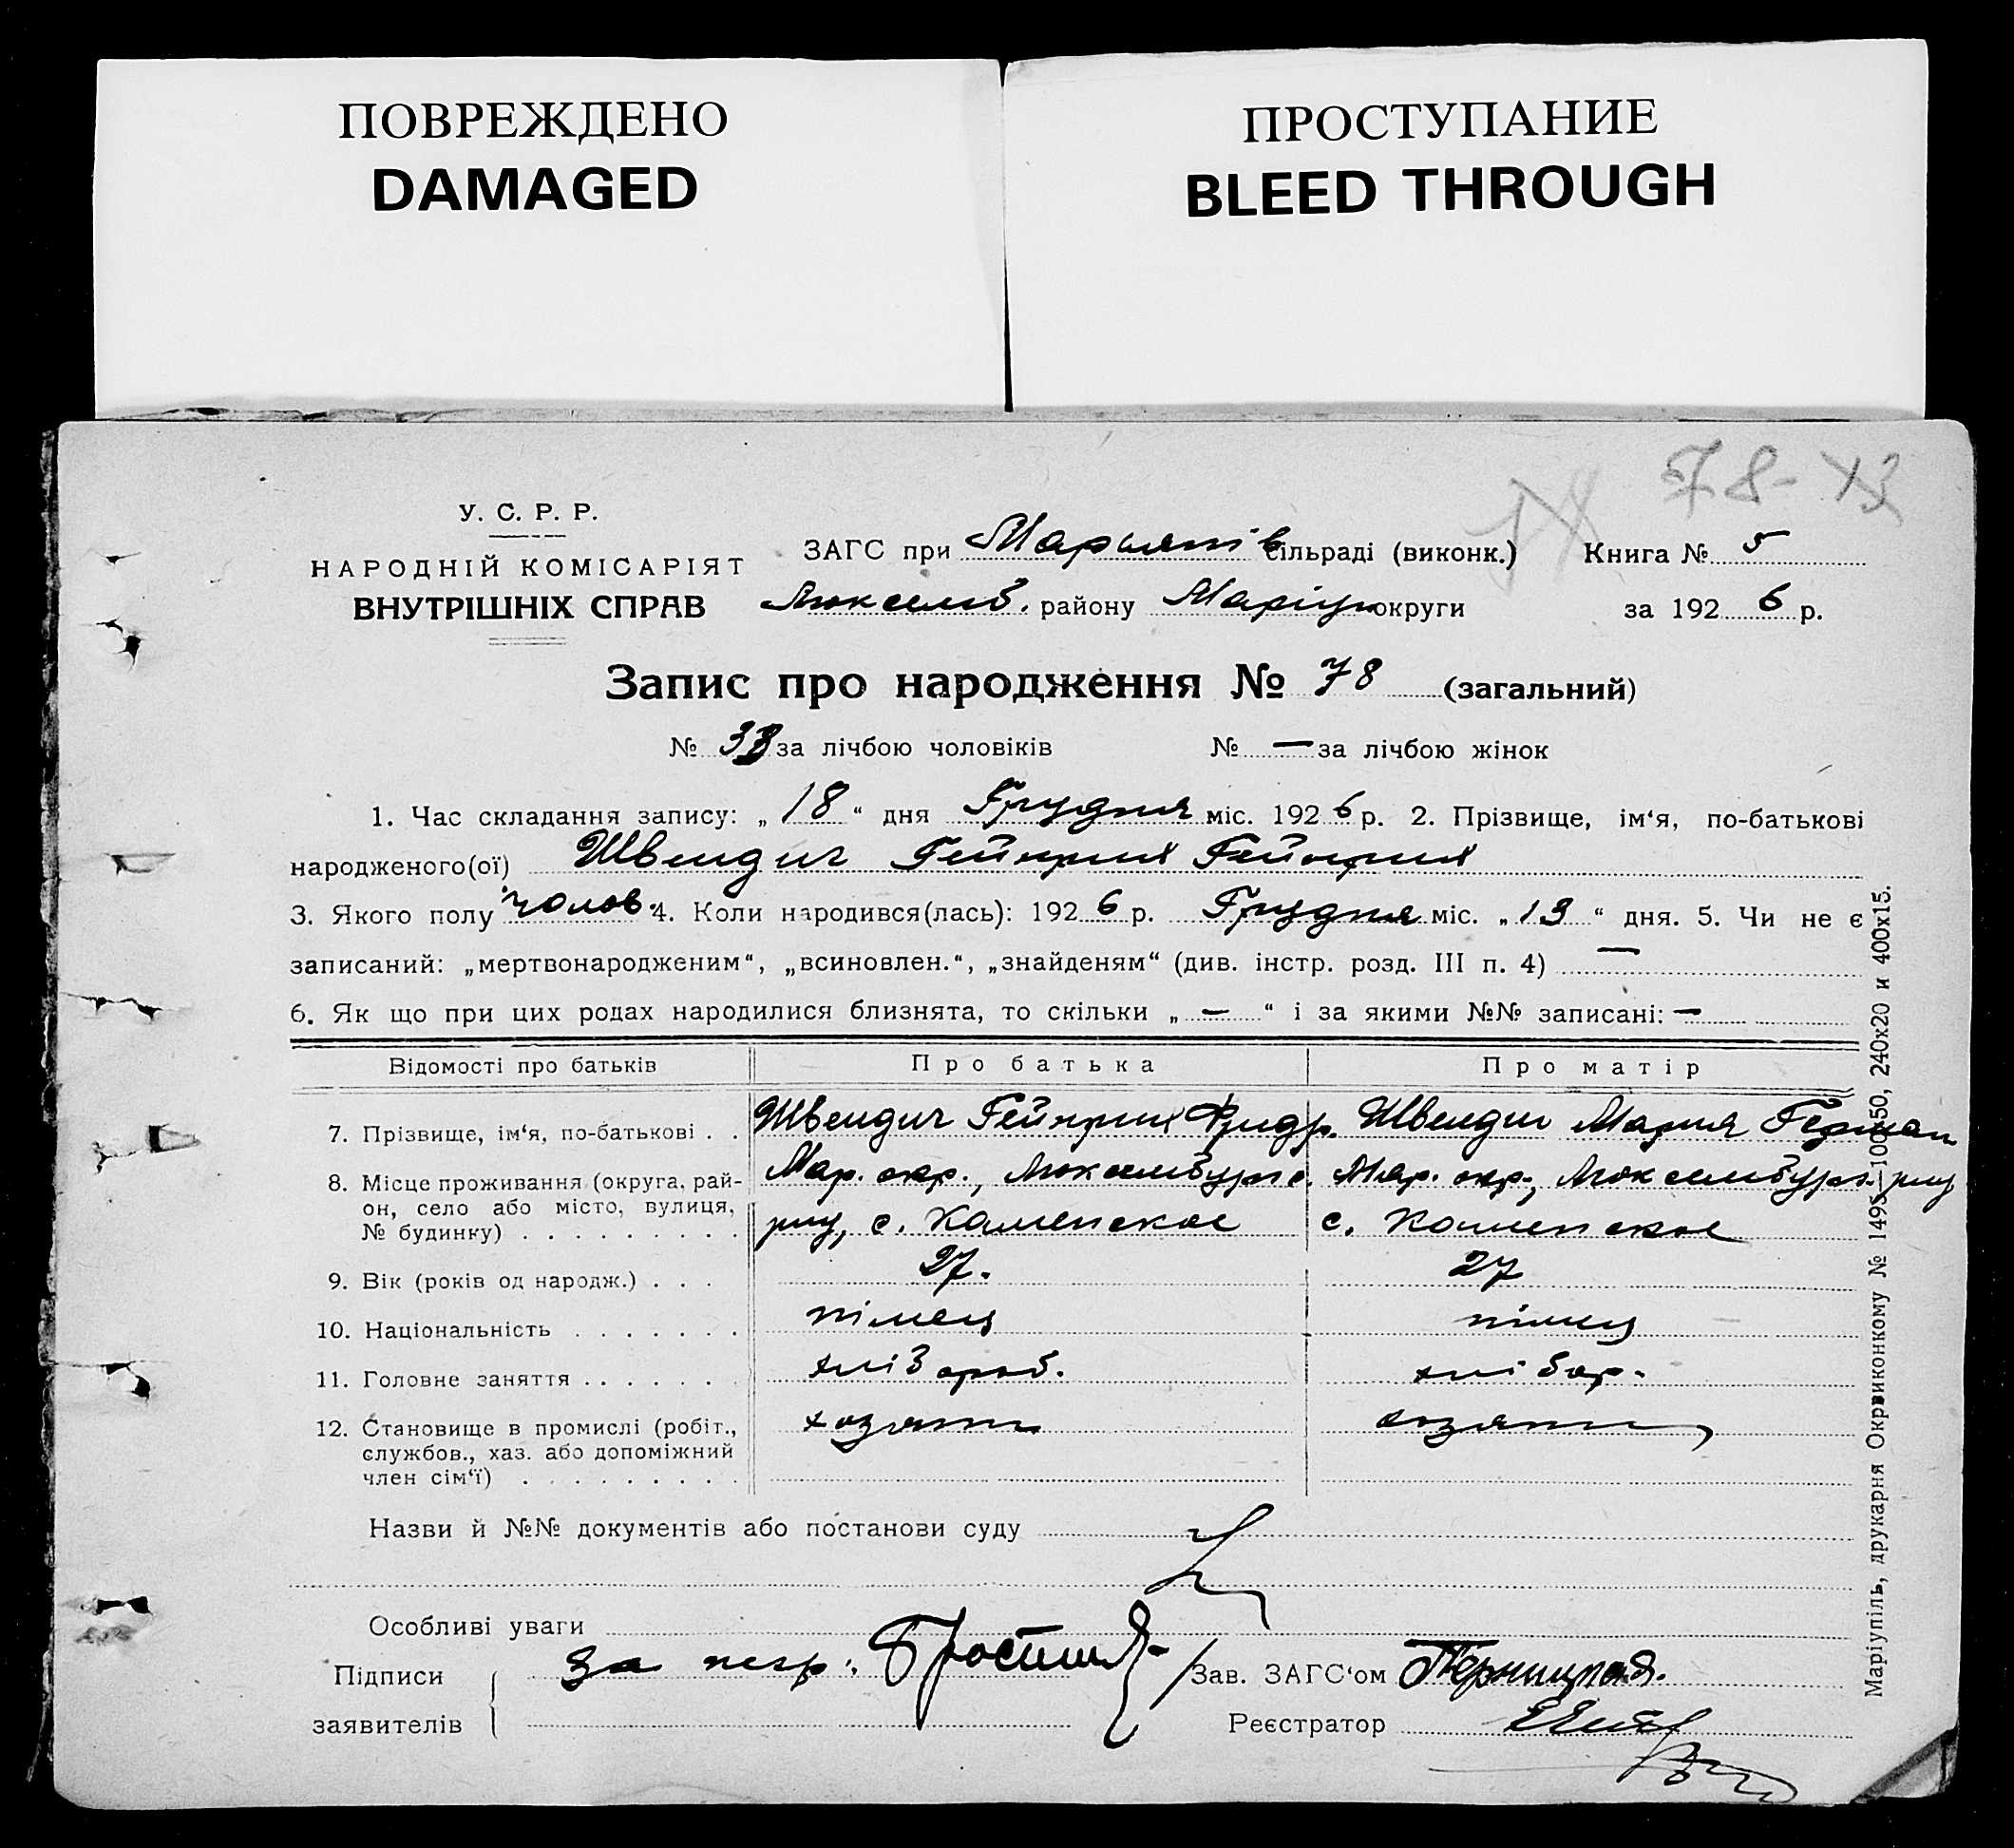 ПОВРЕЖДЕНО
DAMAGED
ПРОСТУПАНИЕ
BLEED THROUGH
78-
У. С. Р. Р.
НАРОДНІЙ КОМІСАРІЯТ
ВНУТРІШНІХ СПРАВ
ЗАГС при сільраді (виконк.) Книга № 5
Люксемб. району Маріуп округи за 192 6 р.
Запис про народження № 78 (загальний)
№ 38 за лічбою чоловіків № — за лічбою жінок
1. Час складання запису: „ 18 “ дня Грудня міс. 192 6 р. 2. Прізвище, ім‘я, по-батькові
народженого(ої) Швендич Гейнрих Гейнрих
3. Якого полу чолов. 4. Коли народився(лась): 192 6 р. Грудня міс. „ 13 “ дня. 5. Чи не є
записаний: „мертвонародженим“, „всиновлен.“, „знайденям“ (див. інстр. розд. III п. 4) —
6. Як що при цих родах народилися близнята, то скільки „ — “ і за якими №№ записані: —
Відомості про батьків Про батька Про матір
7. Прізвище, ім‘я, по-батькові . . Швендич Гейнрих Фридр. Швендич Мария Герман
8. Місце проживання (округа, рай- Мар. окр., Люксембург. Мар. окр., Люксембург. рну
он, село або місто, вулиця, рну, с. Каменское с. Каменское
№ будинку) . . . . . . . . .
9. Вік (років од народж.) . . . 27. 27
10. Національність . . . . . . . німець німець
11. Головне заняття . . . . . . . хлібороб. хлібор.
12. Становище в промислі (робіт., хозяин хозяин
службов., хаз. або допоміжний
член сім‘ї) . . . . . . . . .
Назви й №№ документів або постанови суду
Особливі уваги
Підписи за негр. Зав. ЗАГС‘ом
заявителів Реєстратор
Маріупіль, друкарня Окрвиконкому № 1495—100х50, 240х20 и 400х15.